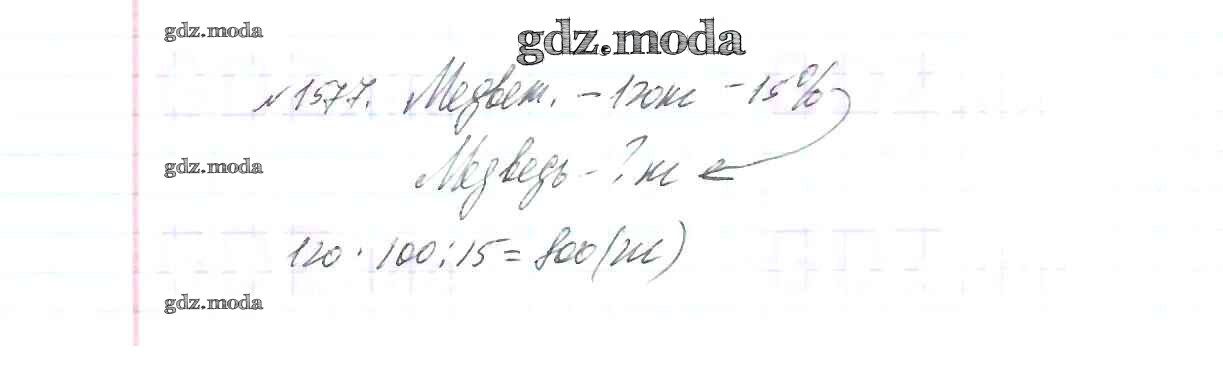 gdz.moda
gdz.moda
№1577. Медвеж. - 120кг - 15%
gdz.moda
Медведь - ? кг
120 · 100 : 15 = 800 (кг)
gdz.moda